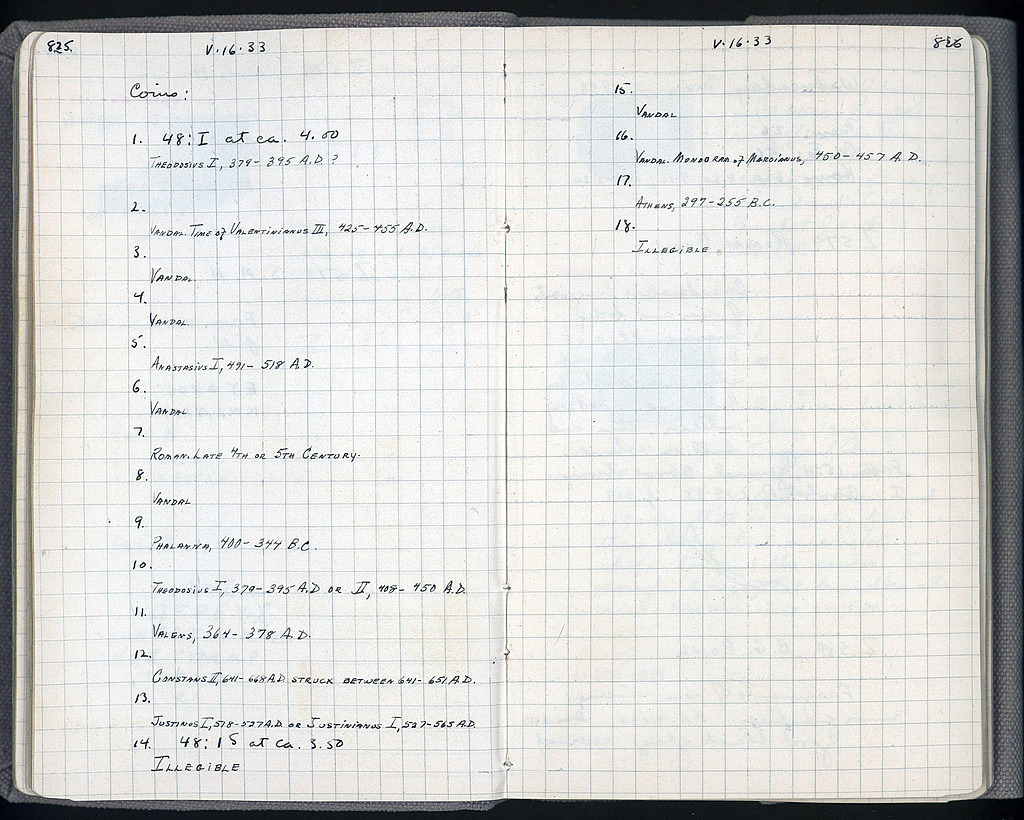 825.
V·16·33
Coins:
1. 48: I at ca. 4.00
THEODOSIUS I, 379-395 A.D ?
2.
VANDAL. TIME of VALENTINIANUS III, 425-455 A.D.
3.
VANDAL
4.
VANDAL.
5.
ANASTASIUS I, 491- 518 A.D.
6.
VANDAL
7.
ROMAN. LATE 4TH OR 5TH CENTURY.
8.
VANDAL
9.
PHALANNA, 400-344 B.C.
10.
THEODOSIUS I, 379-395 A.D OR II, 408- 450 A.D.
11.
VALENS, 364- 378 A.D.
12.
CONSTANS II, 641-668 A.D. STRUCK BETWEEN 641- 651 A.D.
13.
JUSTINUS I, 518-527 A.D. OR JUSTINIANUS I, 527-565 A.D.
14. 48: 15 at ca. 3.50
ILLEGIBLE
V·16·33
826
15.
VANDAL
16.
VANDAL. of MARCIANUS, 450-457 A.D.
17.
ATHENS, 297-255 B.C.
18.
ILLEGIBLE